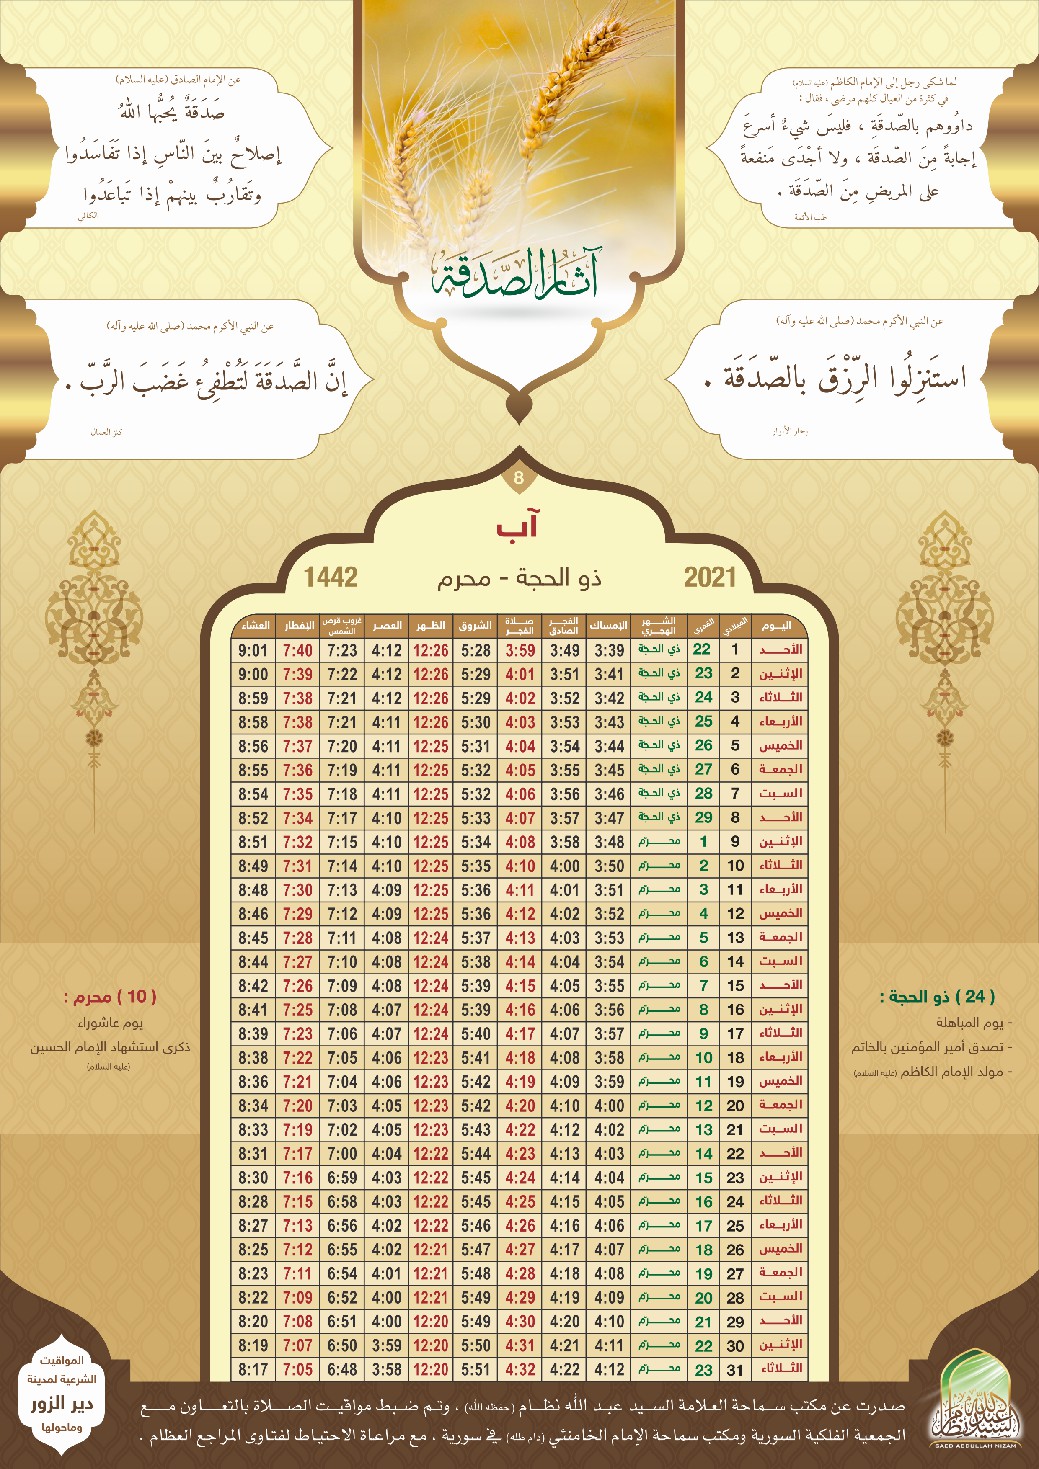 لما شكى رجل إلى الإمام الكاظم (عليه السلام)
في كثرة من العيال كلهم مرضى ، فقال :
داوُوهم بالصّدقَةِ ، فليسَ شيءٌ أسرعَ
إجابةً مِنَ الصّدقَة ، ولا أجْدَى مَنفعةً
على المريضِ مِنَ الصّدَقَة .
طب الأئمة
عن الإمام الصادق (عليه السلام)
صَدَقَةٌ يُحبُّها اللهُ
إصلاحٌ بينَ النّاسِ إذا تَفَاسَدُوا
وتَقارُبٌ بينهمْ إذا تَباعَدُوا
الكافي
آثار الصّدقة
عن النبي الأكرم محمد (صلى الله عليه وآله)
استَنزِلُوا الرِّزْقَ بالصّدَقَة .
بحار الأنوار
عن النبي الأكرم محمد (صلى الله عليه وآله)
إنَّ الصَّدَقَةَ لَتُطْفِئُ غَضَبَ الرَّبّ .
كنز العمال
8
آب
2021 ذو الحجة - محرم 1442
اليوم الميلادي القمري الشهر الهجري الإمساك الفجر الصادق صلاة الفجر الشروق الظهر العصر غروب قرص الشمس الإفطار العشاء
الأحد 1 22 ذي الحجة 3:39 3:49 3:59 5:28 12:26 4:12 7:23 7:40 9:01
الإثنين 2 23 ذي الحجة 3:41 3:51 4:01 5:29 12:26 4:12 7:22 7:39 9:00
الثلاثاء 3 24 ذي الحجة 3:42 3:52 4:02 5:29 12:26 4:12 7:21 7:38 8:59
الأربعاء 4 25 ذي الحجة 3:43 3:53 4:03 5:30 12:26 4:11 7:21 7:38 8:58
الخميس 5 26 ذي الحجة 3:44 3:54 4:04 5:31 12:25 4:11 7:20 7:37 8:56
الجمعة 6 27 ذي الحجة 3:45 3:55 4:05 5:32 12:25 4:11 7:19 7:36 8:55
السبت 7 28 ذي الحجة 3:46 3:56 4:06 5:32 12:25 4:11 7:18 7:35 8:54
الأحد 8 29 ذي الحجة 3:47 3:57 4:07 5:33 12:25 4:10 7:17 7:34 8:52
الإثنين 9 1 محرم 3:48 3:58 4:08 5:34 12:25 4:10 7:15 7:32 8:51
الثلاثاء 10 2 محرم 3:50 4:00 4:10 5:35 12:25 4:10 7:14 7:31 8:49
الأربعاء 11 3 محرم 3:51 4:01 4:11 5:36 12:25 4:09 7:13 7:30 8:48
الخميس 12 4 محرم 3:52 4:02 4:12 5:36 12:25 4:09 7:12 7:29 8:46
الجمعة 13 5 محرم 3:53 4:03 4:13 5:37 12:24 4:08 7:11 7:28 8:45
السبت 14 6 محرم 3:54 4:04 4:14 5:38 12:24 4:08 7:10 7:27 8:44
الأحد 15 7 محرم 3:55 4:05 4:15 5:39 12:24 4:08 7:09 7:26 8:42
الإثنين 16 8 محرم 3:56 4:06 4:16 5:39 12:24 4:07 7:08 7:25 8:41
الثلاثاء 17 9 محرم 3:57 4:07 4:17 5:40 12:24 4:07 7:06 7:23 8:39
الأربعاء 18 10 محرم 3:58 4:08 4:18 5:41 12:23 4:06 7:05 7:22 8:38
الخميس 19 11 محرم 3:59 4:09 4:19 5:42 12:23 4:06 7:04 7:21 8:36
الجمعة 20 12 محرم 4:00 4:10 4:20 5:42 12:23 4:05 7:03 7:20 8:34
السبت 21 13 محرم 4:02 4:12 4:22 5:43 12:23 4:05 7:02 7:19 8:33
الأحد 22 14 محرم 4:03 4:13 4:23 5:44 12:22 4:04 7:00 7:17 8:31
الإثنين 23 15 محرم 4:04 4:14 4:24 5:45 12:22 4:03 6:59 7:16 8:30
الثلاثاء 24 16 محرم 4:05 4:15 4:25 5:45 12:22 4:03 6:58 7:15 8:28
الأربعاء 25 17 محرم 4:06 4:16 4:26 5:46 12:22 4:02 6:56 7:13 8:27
الخميس 26 18 محرم 4:07 4:17 4:27 5:47 12:21 4:02 6:55 7:12 8:25
الجمعة 27 19 محرم 4:08 4:18 4:28 5:48 12:21 4:01 6:54 7:11 8:23
السبت 28 20 محرم 4:09 4:19 4:29 5:49 12:21 4:00 6:52 7:09 8:22
الأحد 29 21 محرم 4:10 4:20 4:30 5:49 12:20 4:00 6:51 7:08 8:20
الإثنين 30 22 محرم 4:11 4:21 4:31 5:50 12:20 3:59 6:50 7:07 8:19
الثلاثاء 31 23 محرم 4:12 4:22 4:32 5:51 12:20 3:58 6:48 7:05 8:17
( 24 ) ذو الحجة :
- يوم المباهلة
- تصدق أمير المؤمنين بالخاتم
- مولد الإمام الكاظم (عليه السلام)
( 10 ) محرم :
يوم عاشوراء
ذكرى استشهاد الإمام الحسين
(عليه السلام)
صدرت عن مكتب سماحة العلامة السيد عبد الله نظام (حفظه الله) ، وتم ضبط مواقيت الصلاة بالتعاون مع
الجمعية الفلكية السورية ومكتب سماحة الإمام الخامنئي (دام ظله) في سورية ، مع مراعاة الاحتياط لفتاوى المراجع العظام .
المواقيت
الشرعية لمدينة
دير الزور
وماحولها
السيد عبد الله نظام
SAED ABDULLAH NIZAM